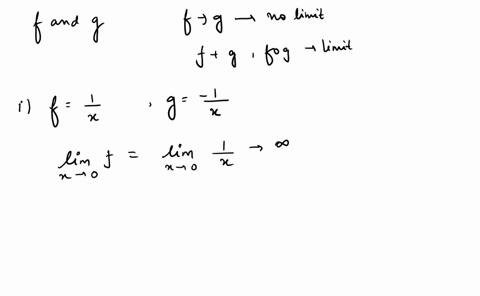 f and g f → g → no limit
f + g , fog → limit
i) f = 1/x , g = -1/x
lim x→0 f = lim x→0 1/x → ∞